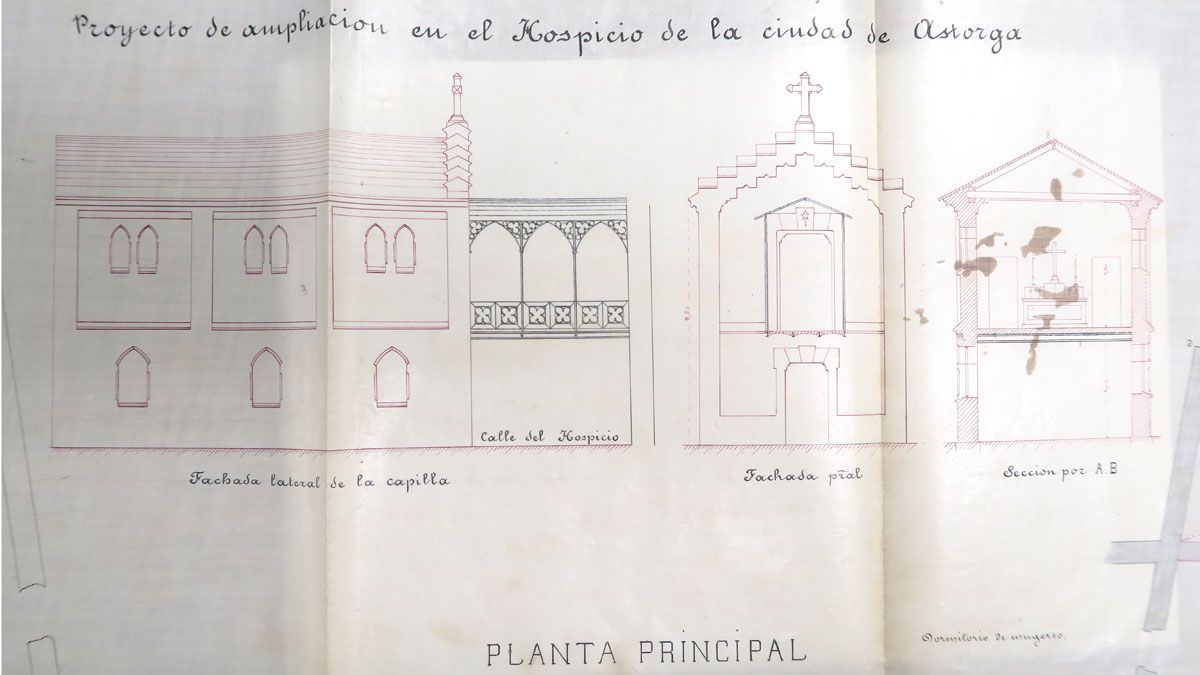 Proyecto de ampliacion en el Hospicio de la ciudad de Astorga
Calle del Hospicio
Fachada lateral de la capilla
Fachada pr̃al
Seccion por A.B
Dormitorio de mugeres.
PLANTA PRINCIPAL